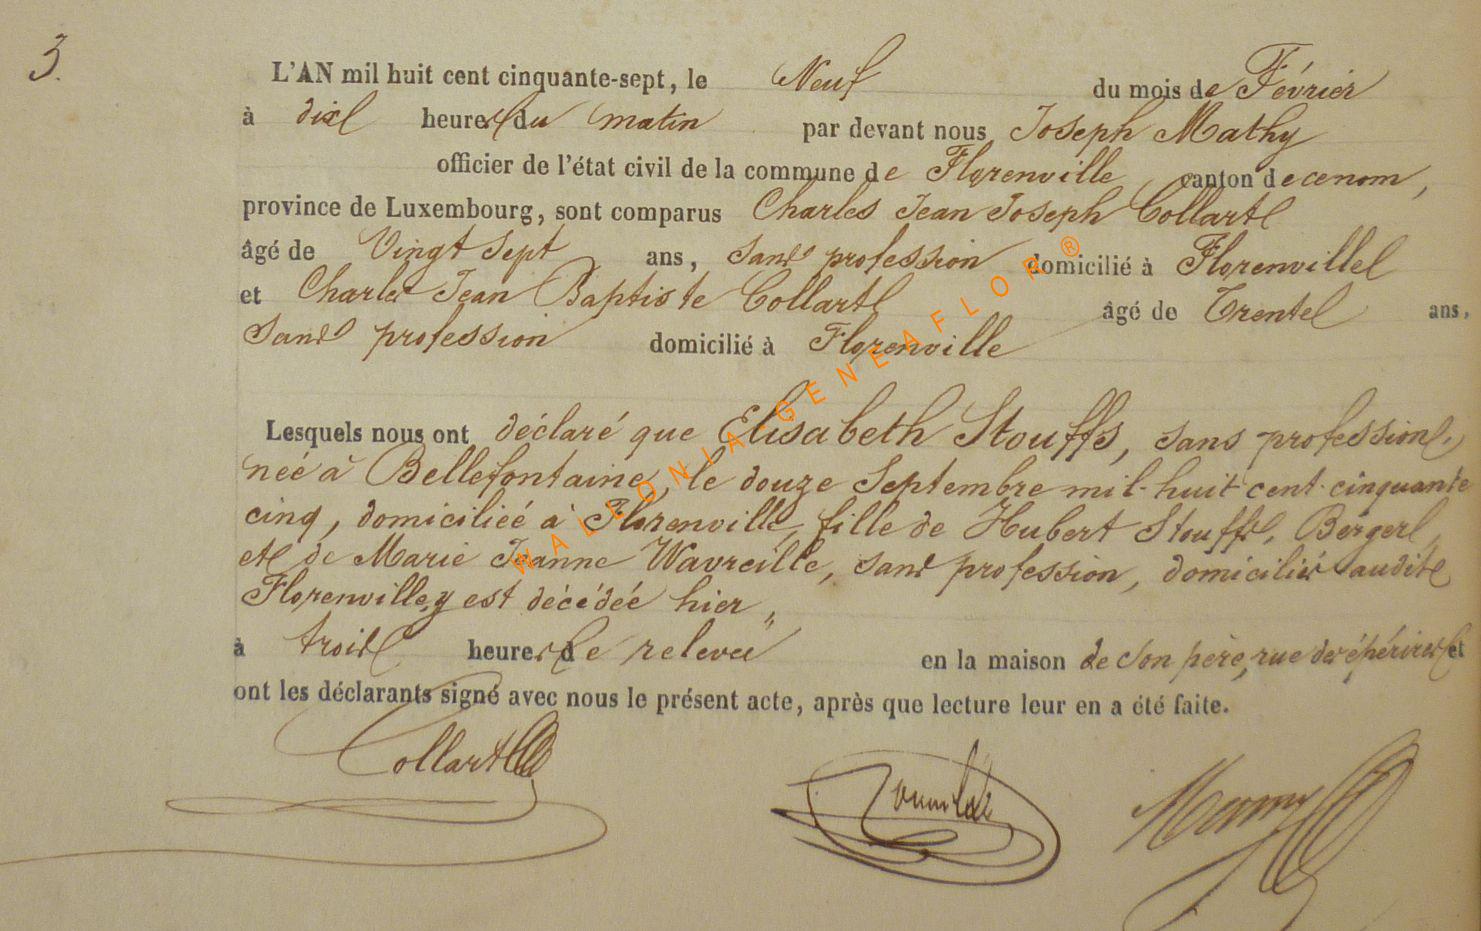 3.
L'AN mil huit cent cinquante-sept, le Neuf du mois de Février
à dix heures du matin par devant nous Joseph Mathy
officier de l'état civil de la commune de Florenville, canton de ce nom,
province de Luxembourg, sont comparus Charles Jean Joseph Collart
âgé de Vingt sept ans, sans profession domicilié à Florenville
et Charles Jean Baptiste Collart âgé de Trente ans,
sans profession domicilié à Florenville
Lesquels nous ont déclaré que Elisabeth Stouffs, sans profession,
née à Bellefontaine, le douze Septembre mil-huit cent cinquante
cinq, domiciliée à Florenville, fille de Hubert Stouffs, Berger,
et de Marie Jeanne Wavreille, sans profession, domiciliés audit
Florenville, y est décédée hier,
à trois heures de relevée en la maison de son père, rue des et
ont les déclarants signé avec nous le présent acte, après que lecture leur en a été faite.
Collart
WALLONIA-GENEAFLOR®